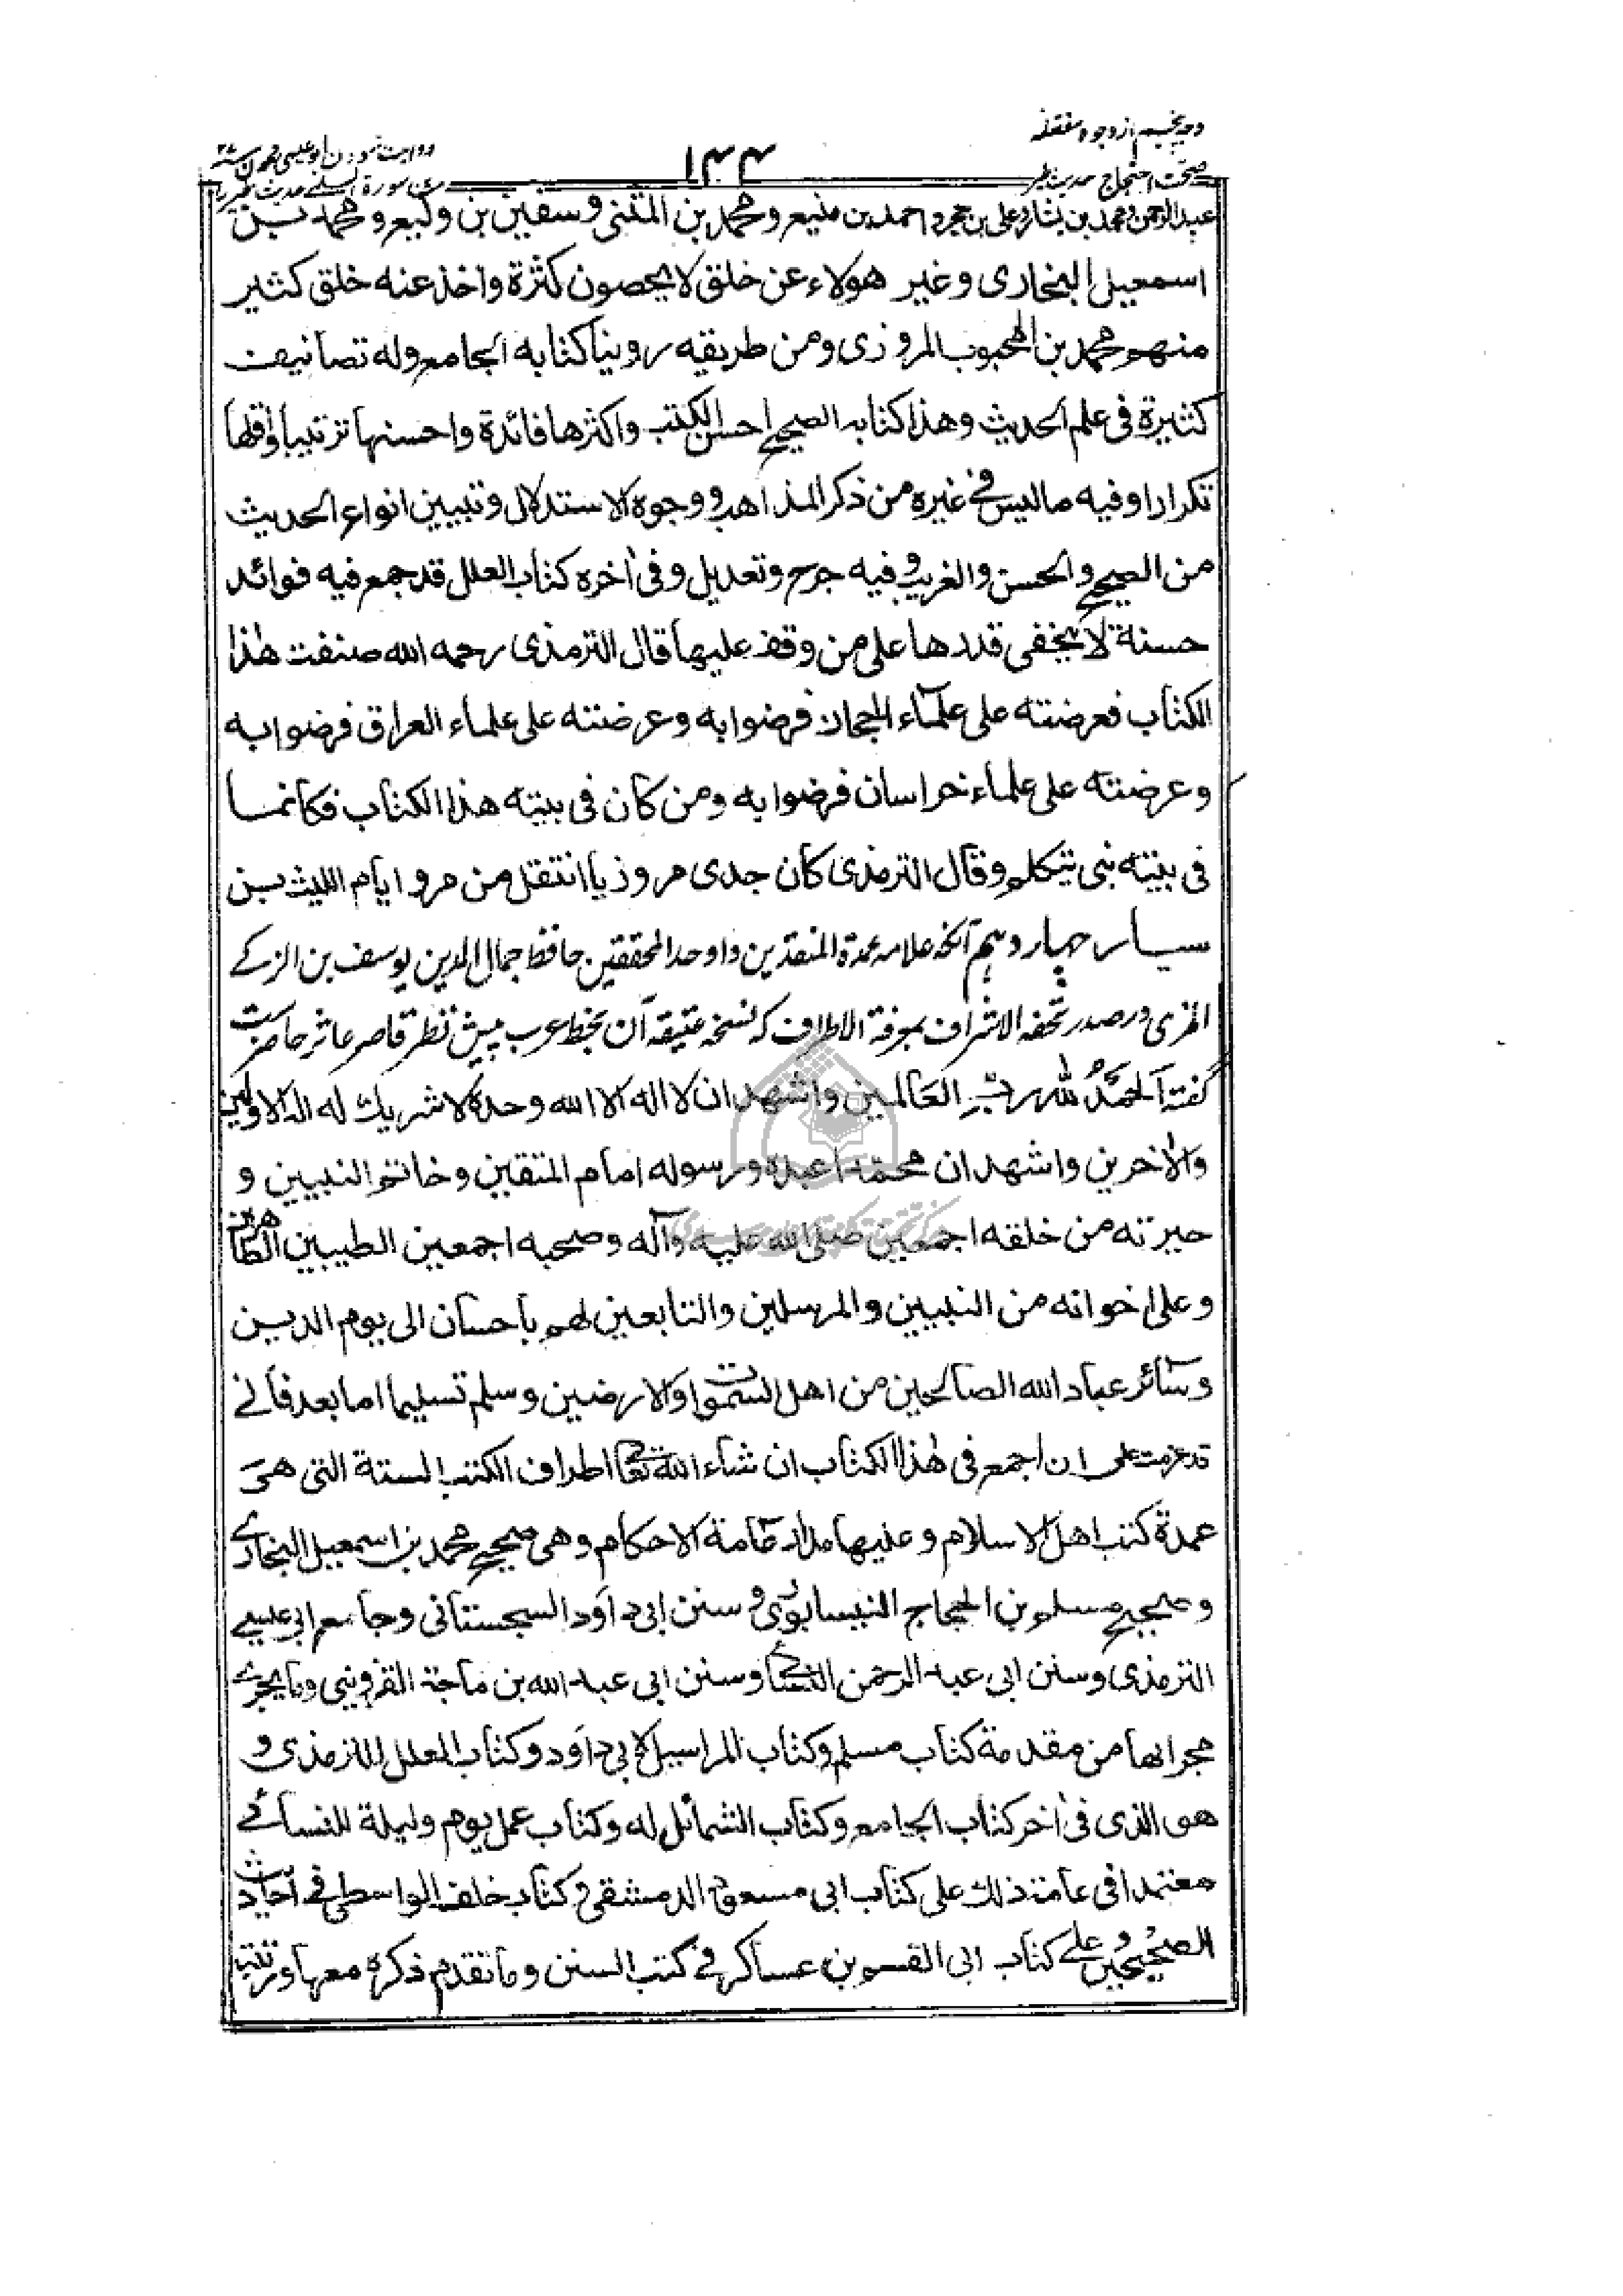 وجه پنجم از وجوه مفصله
صحت احتجاج بحدیث طیر
روایت نمودن ابو عیسی محمد بن
بن سورة السلمی حدیث طیر را
عبدالرحمن ومحمد بن بشار وعلی بن حجر واحمد بن منیع ومحمد بن المثنی وسفین بن وکیع ومحمد بن
اسمعیل البخاری وغیر هولاء عن خلق لا یحصون کثرة واخذ عنه خلق کثیر
منهم محمد بن المحبوب المروزی ومن طریقه روینا کتابه الجامع وله تصانیف
کثیرة فی علم الحدیث وهذا کتابه الصحیح احسن الکتب واکثرها فائدة واحسنها ترتیبا واقلها
تکرارا وفیه ما لیس فی غیره من ذکر المذاهب ووجوه الاستدلال وتبیین انواع الحدیث
من الصحیح والحسن والغریب وفیه جرح وتعدیل وفی اخره کتاب العلل قد جمع فیه فوائد
حسنة لا یخفی قدرها علی من وقف علیها قال الترمذی رحمه الله صنفت هذا
الکتاب فعرضته علی علماء الحجاز فرضوا به وعرضته علی علماء العراق فرضوا به
وعرضته علی علماء خراسان فرضوا به ومن کان فی بیته هذا الکتاب فکانما
فی بیته نبی یتکلم وقال الترمذی کان جدی مروزیا انتقل من مرو ایام اللیث بن
سیار چهاردهم آنکه علامه عمدة المنقدین واوحد المحققین حافظ جمال الدین یوسف بن الزکے
المزی در صدر تحفه الاشراف بمعرفة الاطراف که نسخه عتیقه آن بخط عرب پیش نظر قاصر عاثر حاضرست
گفته الحمد لله رب العالمین واشهد ان لا اله الا الله وحده لا شریك له اله الاولین
والاخرین واشهد ان محمدا عبده ورسوله امام المتقین وخاتم النبیین و
خیرته من خلقه اجمعین صلی الله علیه وآله وصحبه اجمعین الطیبین الطاهرین
وعلی اخوانه من النبیین والمرسلین والتابعین لهم باحسان الی یوم الدین
وسائر عباد الله الصالحین من اهل السموات والارضین وسلم تسلیما اما بعد فانے
قد عزمت علی ان اجمع فی هذا الکتاب ان شاء الله تعالی اطراف الکتب الستة التی هی
عمدة کتب اهل الاسلام وعلیها مدار عامة الاحکام وهی صحیح محمد بن اسمعیل البخارے
وصحیح مسلم بن الحجاج النیسابوری وسنن ابی داود السجستانی وجامع ابی عیسے
الترمذی وسنن ابی عبد الرحمن النسائی وسنن ابی عبد الله بن ماجة القزوینی وما یجرے
مجراها من مقدمة کتاب مسلم وکتاب المراسیل لابی داود وکتاب العلل للترمذی و
هو الذی فی اخر کتاب الجامع وکتاب الشمائل له وکتاب عمل یوم ولیلة للنسائے
معتمدا فی عامة ذلك علی کتاب ابی مسعود الدمشقی وکتاب خلف الواسطی فی احادیث
الصحیحین وعلے کتاب ابی القسم بن عساکر فی کتب السنن وما تقدم ذکره معها ورتبته